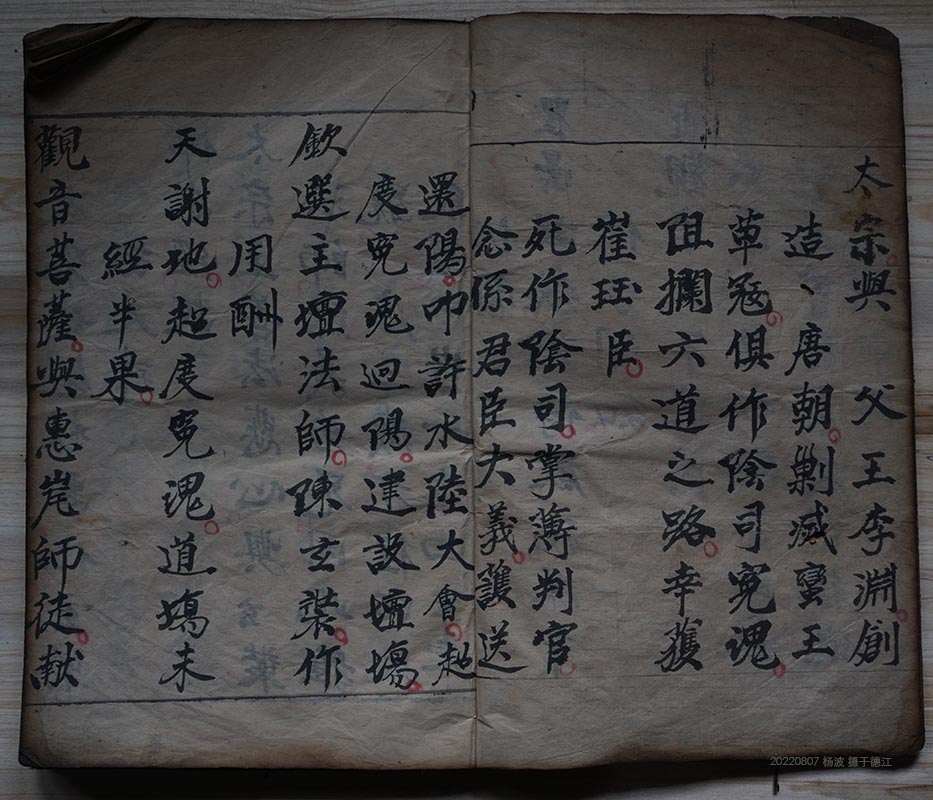 太宗與 父王李淵創
造 唐朝剿滅蠻王
草冦俱作陰司寃魂
阻攔六道之路幸獲
崔珏臣
死作隂司掌薄判官
念係君臣大義護送
還陽叩許水陸大會超
度寃魂迴陽建設壇塲
欽選主壇法師陳玄裝作
用酬
天謝地超度寃魂道塲未
經半果
觀音菩薩與惠岸師徒献
20220807 杨波 摄于德江